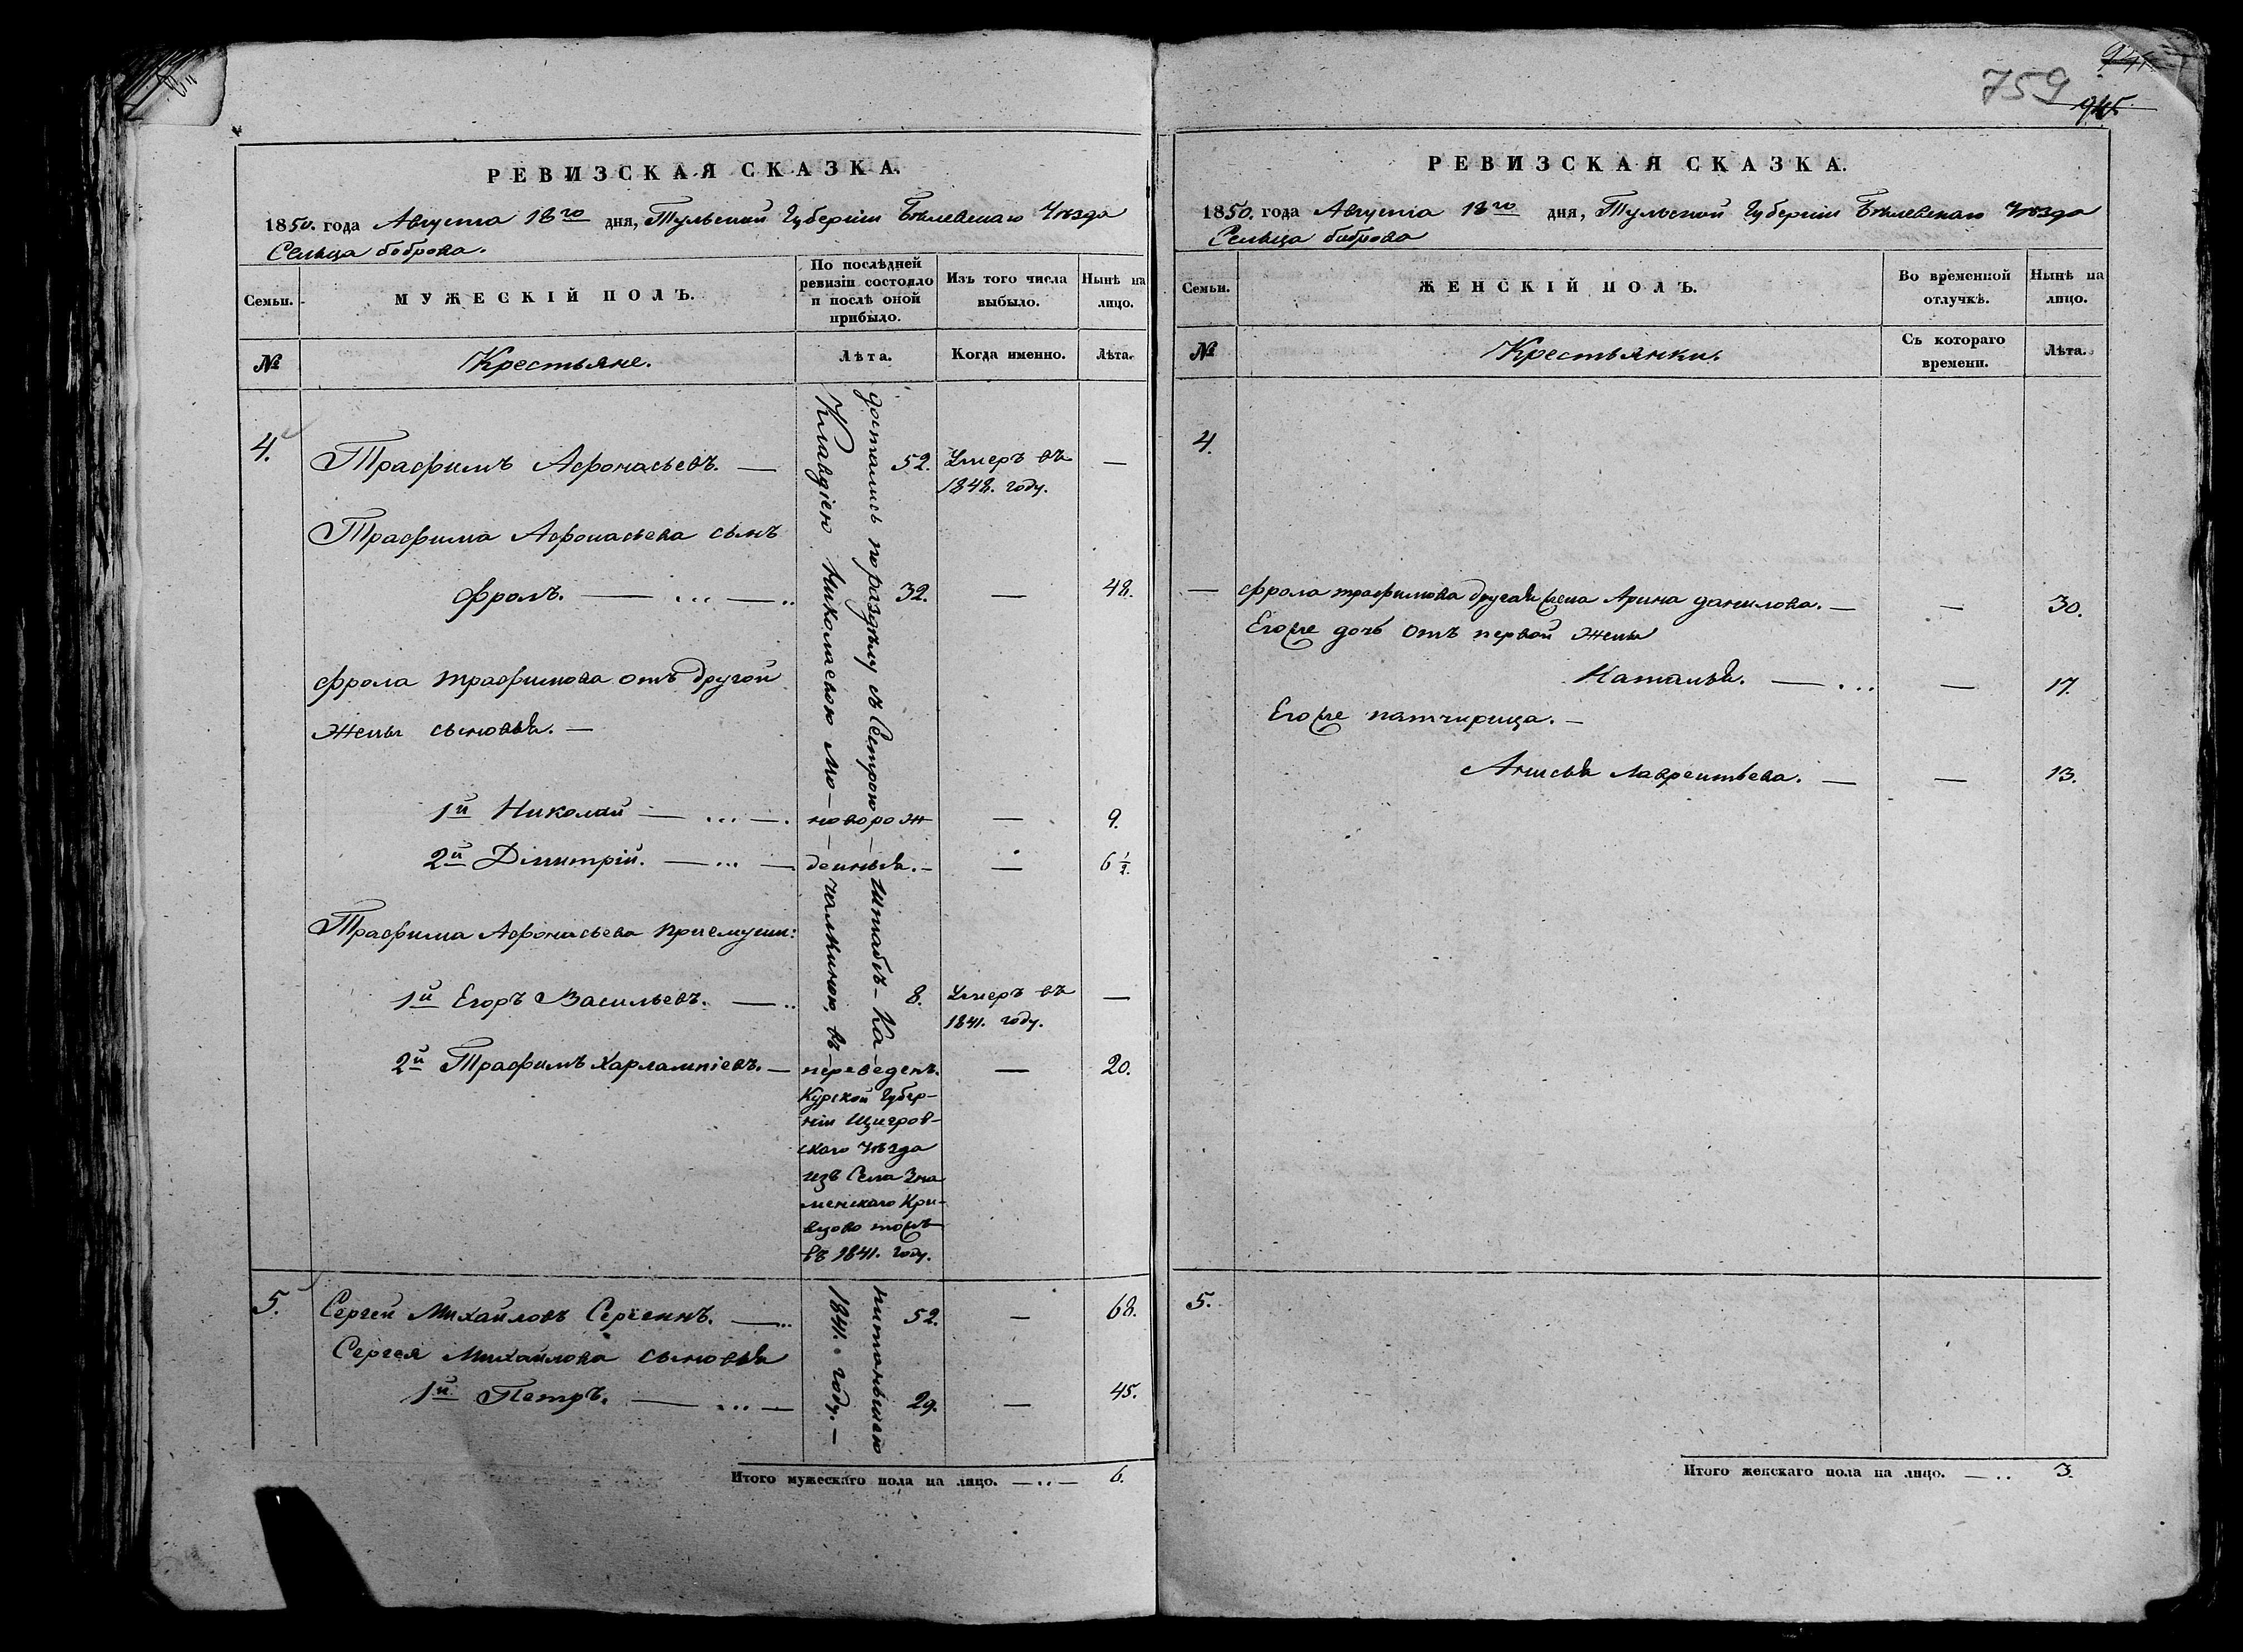 759
945.
РЕВИЗСКАЯ СКАЗКА.
1850. года Августа 18го дня, Тульской Губерніи Бѣлевскаго Уѣзда
Сельца боброва.
Семьи.
МУЖЕСКІЙ ПОЛЪ.
По послѣдней ревизіи состояло и послѣ оной прибыло.
Изъ того числа выбыло.
Нынѣ на лицо.
№
Крестьяне.
Лѣта.
Когда именно.
Лѣта.
4.
Трафимъ Афонасьевъ. — 52. Умеръ въ —
1848. году.
Трафима Афонасьева сынъ
фролъ. — ... — 32. — 48.
фрола трафимова отъ другой
жены сыновья. —
1й Николай — ... — новорож — 9.
2й Дімитрій. — ... — денныя. — — 6 1/2.
Трафима Афонасьева приемуши:
1й Егоръ Васильевъ. — 8. Умеръ въ —
1841. году.
2й Трафимъ Харлампіевъ. — переведенъ. — 20.
Курской Губер-
ніи Щигров-
скаго Уѣзда
изъ Села Зна
менскаго Кри-
вцово тожъ
въ 1841. году.
достались по раздѣлу съ Сестрою — Штабсъ-Ка-
питаньшею
Клавдіею Николаевою Мо-
чалкиною, въ
1841. году. —
5.
Сергей Михайловъ Сергеинъ. — 52. — 68.
Сергея Михайлова сыновья
1й Петръ. — ... — 29. — 45.
Итого мужескаго пола на лицо. — .. — 6.
РЕВИЗСКАЯ СКАЗКА.
1850. года Августа 18го дня, Тульской Губерніи Бѣлевскаго Уѣзда
Сельца боброва
Семьи.
ЖЕНСКІЙ ПОЛЪ.
Во временной отлучкѣ.
Нынѣ на лицо.
№
Крестьянки.
Съ котораго времени.
Лѣта.
4.
— фрола трафимова другая жена Арина данилова. — — 30.
Егоже дочь отъ первой жены
Наталья. — ... — 17.
Егоже патчирица. —
Анисья Лаврентьева. — — 13.
5.
Итого женскаго пола на лицо. — .. 3.